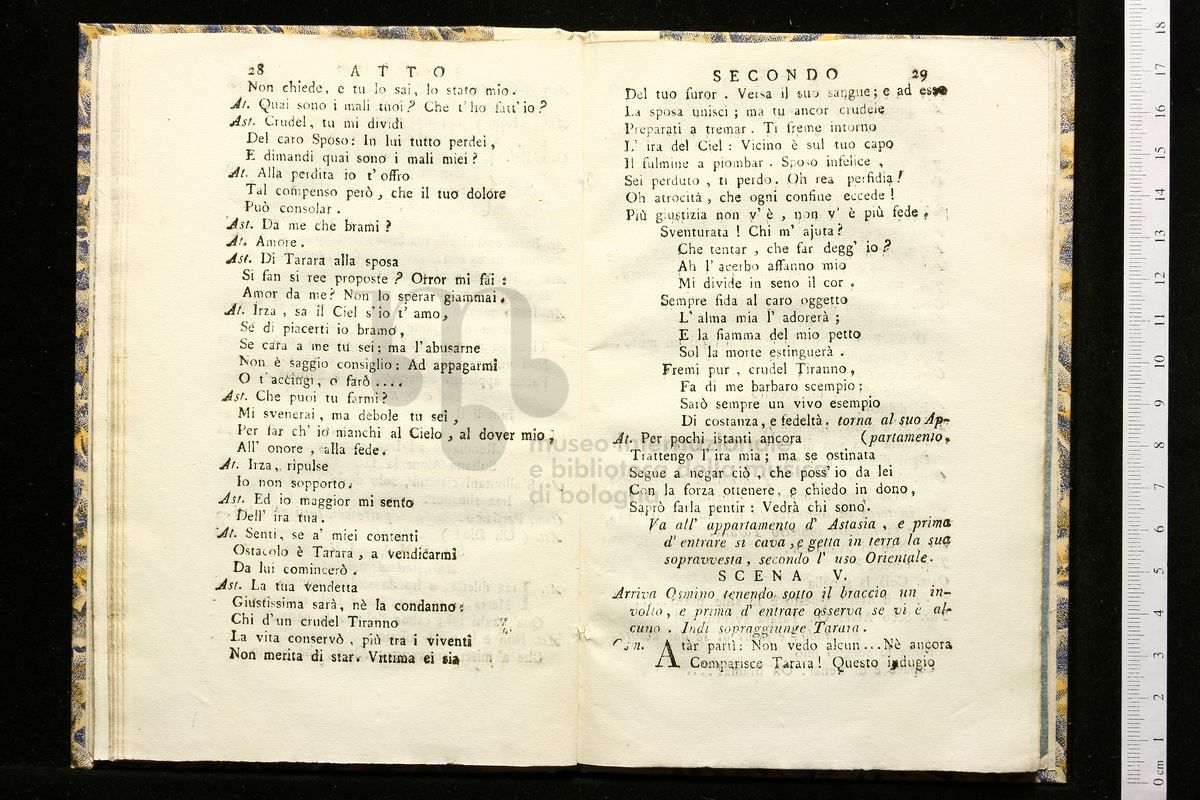 28 ATTO
Non chiede, e tu lo sai, lo stato mio.
At. Quai sono i mali tuoi? Che t'ho fatt'io?
Ast. Crudel, tu mi dividi
Del caro Sposo: In lui tutto perdei,
E dimandi quai sono i mali miei?
At. Alla perdita io t'offro
Tal compenso però, che il tuo dolore
Può consolar.
Ast. Da me che brami?
At. Amore.
Ast. Di Tarara alla sposa
Si fan si ree proposte? Orror mi fai:
Amor da me? Non lo sperar giammai.
At. Irza, sa il Ciel s'io t'amo,
Se di piacerti io bramo,
Se cara a me tu sei; ma l'abusarne
Non è saggio consiglio: Ad appagarmi
O t'accingi, o farò ....
Ast. Che puoi tu farmi?
Mi svenerai, ma debole tu sei,
Per far ch'io manchi al Cielo, al dover mio,
All'onore, alla fede.
At. Irza, ripulse
Io non sopporto.
Ast. Ed io maggior mi sento
Dell'ira tua.
At. Senti, se a' miei contenti
Ostacolo è Tarara, a vendicarmi
Da lui comincerò.
Ast. La tua vendetta
Giustissima sarà, nè la condanno:
Chi d'un crudel Tiranno
La vita conservò, più tra i viventi
Non merita di star. Vittima ei sia
SECONDO 29
Del tuo furor. Versa il suo sangue; e ad esso
La sposa unisci; ma tu ancor crudele
Preparati a tremar. Ti freme intorno
L'ira del Ciel: Vicino è sul tuo capo
Il fulmine a piombar. Sposo infelice,
Sei perduto, ti perdo. Oh rea perfidia!
Oh atrocità, che ogni confine eccede!
Più giustizia non v'è, non v'è più fede.
Sventurata! Chi m'ajuta?
Che tentar, che far degg'io?
Ah l'acerbo affanno mio
Mi divide in seno il cor.
Sempre fida al caro oggetto
L'alma mia l'adorerà;
E la fiamma del mio petto
Sol la morte estinguerà.
Fremi pur, crudel Tiranno,
Fa di me barbaro scempio;
Sarò sempre un vivo esempio
Di costanza, e fedeltà. torna al suo Ap-
At. Per pochi istanti ancora (partamento.
Trattengo l'ira mia; ma se ostinata
Segue a negar ciò, che poss'io da lei
Con la forza ottenere, e chiedo in dono,
Saprò farla pentir: Vedrà chi sono.
Va all'appartamento d'Astasia, e prima
d'entrare si cava, e getta in terra la sua
sopravvesta, secondo l'uso Orientale.
SCENA V.
Arriva Osmino tenendo sotto il braccio un in-
volto, e prima d'entrare osserva se vi è al-
cuno. Indi sopraggiunge Tarara.
Osn. Atar partì: Non vedo alcun... Nè ancora
Comparisce Tarara! Questo indugio
museo internazionale
e biblioteca della musica
di bologna
0 cm 1 2 3 4 5 6 7 8 9 10 11 12 13 14 15 16 17 18